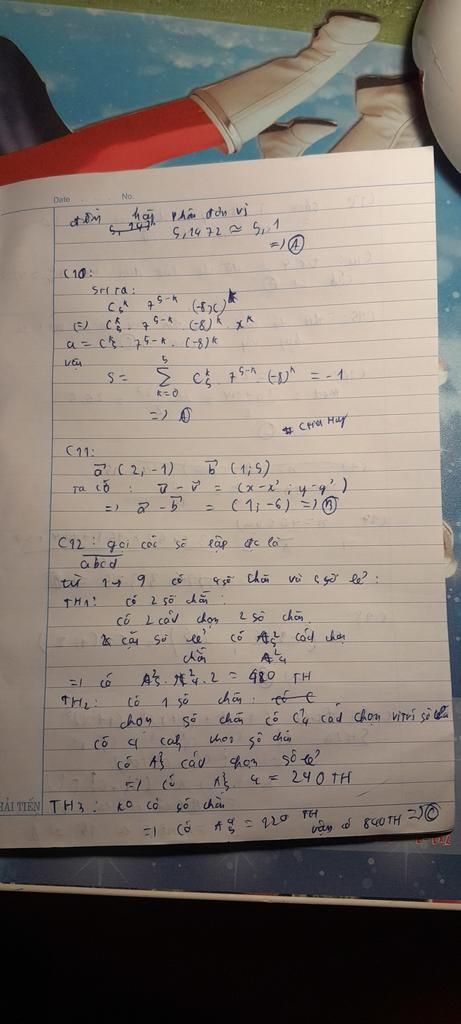 Date No.
đến hàng phần đơn vị
5,1472 ≈ 5,1
=> A
C10:
SHTQ:
C₅ᵏ 7⁵⁻ᵏ (-8x)ᵏ
(=) C₅ᵏ. 7⁵⁻ᵏ. (-8)ᵏ. xᵏ
a = C₅ᵏ. 7⁵⁻ᵏ. (-8)ᵏ
vậy
S = ∑ C₅ᵏ. 7⁵⁻ᵏ. (-8)ᵏ = -1
k=0 5
=> A
C11:
a⃗ (2;-1) b⃗ (1;5)
ta có : u⃗ - v⃗ = (x-x'; y-y')
=> a⃗ - b⃗ = (1;-6) => B
C12: gọi các số lập đc là
abcd
từ 1 → 9 có 4 số chẵn và 5 số lẻ:
TH1: có 2 số chẵn:
có 2 cách chọn 2 số chẵn
số lẻ có A₅² cách chọn
chẵn A₄²
=> có A₅². A₄². 2 = 480 TH
TH2: có 1 số chẵn:
chọn số chẵn có C₄¹ cách chọn vị trí số chẵn
có 4 cách chọn số chẵn
có A₅³ cách chọn số lẻ
=> có A₅³. 4 = 240 TH
HẢI TIẾN
TH3: ko có số chẵn
=> có A₅⁴ = 120 TH
vậy có 840 TH => C